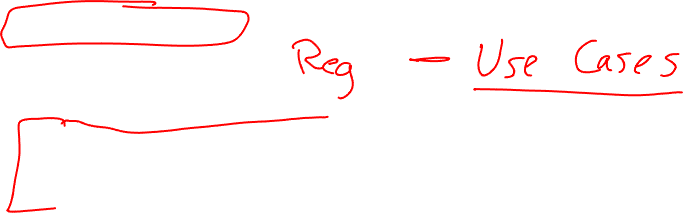 Reg - Use Cases